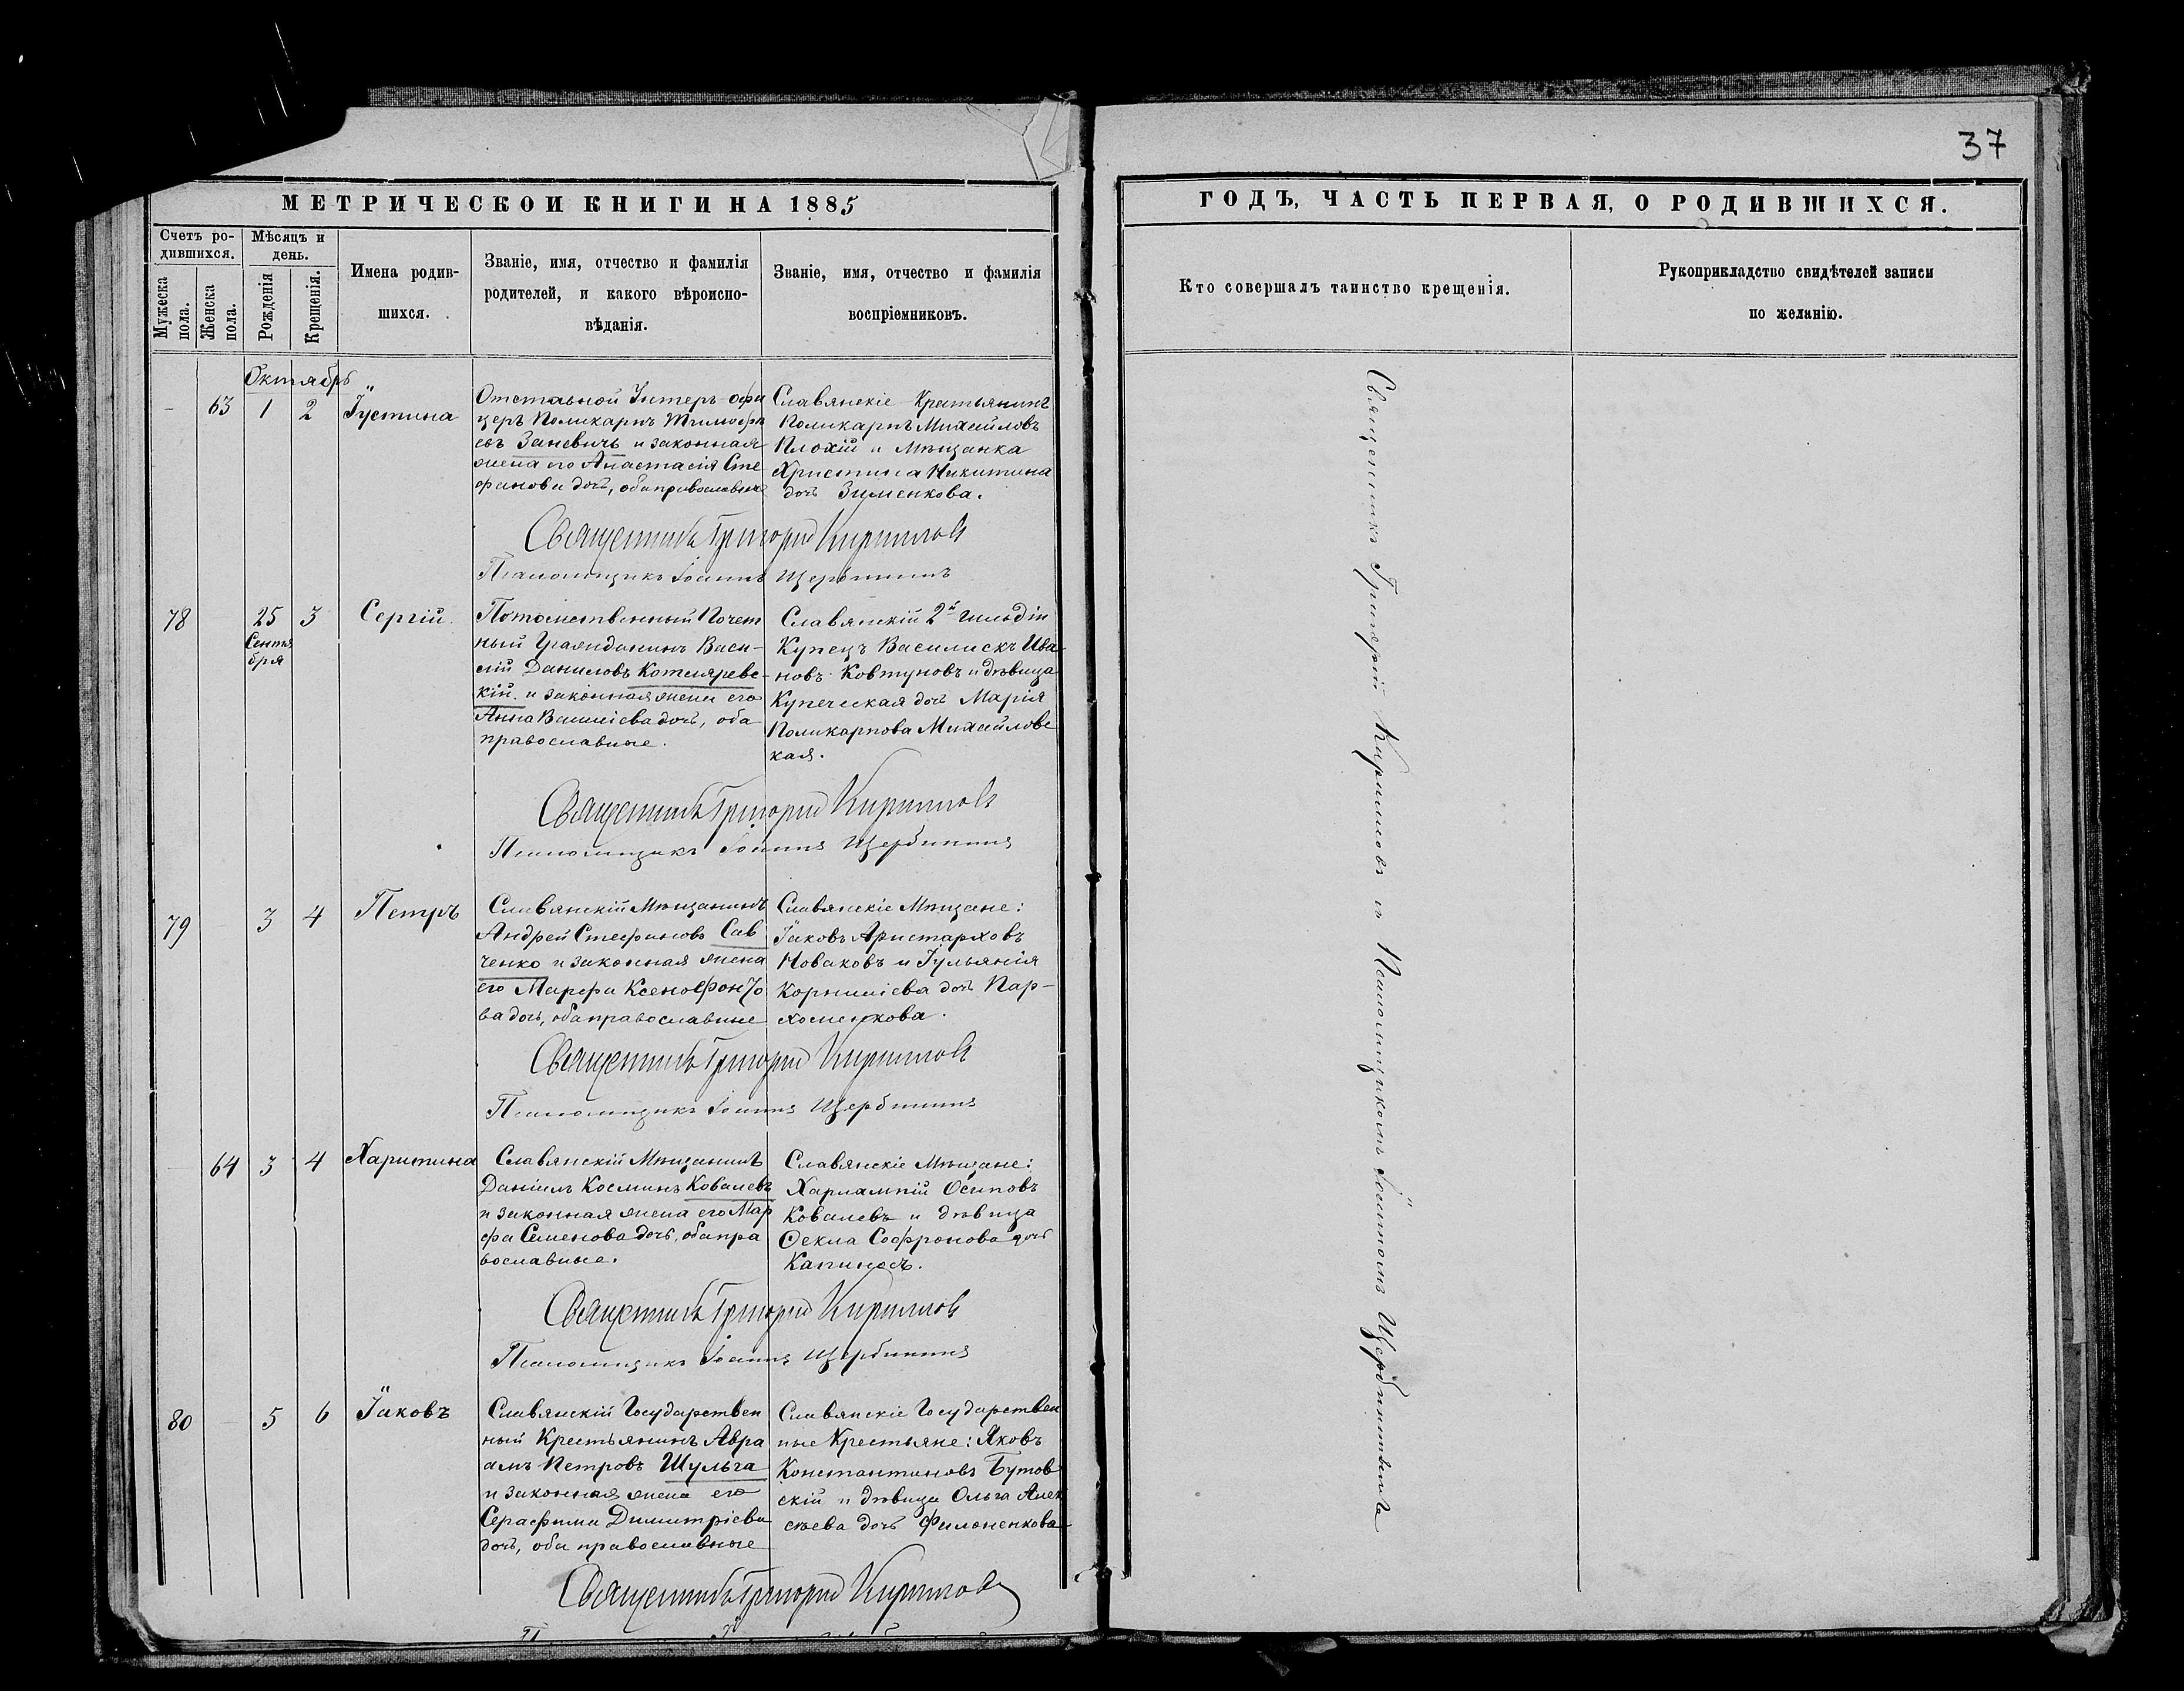 37
МЕТРИЧЕСКОЙ КНИГИ НА 1885
ГОДЪ, ЧАСТЬ ПЕРВАЯ, О РОДИВШИХСЯ.
Счетъ ро-
дившихся.
Мужеска
пола.
Женска
пола.
Мѣсяцъ и
день.
Рожденія
Крещенія.
Имена родив-
шихся.
Званіе, имя, отчество и фамилія
родителей, и какого вѣроиспо-
вѣданія.
Званіе, имя, отчество и фамилія
воспріемниковъ.
Кто совершалъ таинство крещенія.
Рукоприкладство свидѣтелей записи
по желанію.
Октябрь
63 1 2 Іустина
Отставной Унтеръ-офи
церъ Поликарпъ Тимофе
евъ Заневичь и законная
жена его Анастасія Сте
фанова дочь, оба православные
Славянскіе Крестьянинъ
Поликарпъ Михайловъ
Плохій и Мѣщанка
Христина Никитина
дочь Зименкова.
Священникъ Григорій Кирилловъ
Псаломщикъ Іоаннъ Щербининъ
78 25 3 Сергій
Сентя
бря
Потомственный Почет
ный Гражданинъ Васи-
лій Даниловъ Котляревс-
кій и законная жена его
Анна Василіева дочь, оба
православные.
Славянскій 2й гильдіи
Купецъ Василискъ Ива-
новъ Ковтуновъ и дѣвица
Купеческая дочь Марія
Поликарпова Михайловс
кая.
Священникъ Григорій Кирилловъ
Псаломщикъ Іоаннъ Щербининъ
79 3 4 Петръ
Славянскій Мѣщанинъ
Андрей Стефановъ Сав
ченко и законная жена
его Марфа Ксенофонто
ва дочь, оба православные
Славянскіе Мѣщане:
Іаковъ Аристарховъ
Новаковъ и Іульянія
Корниліева дочь Пар-
хоменкова.
Священникъ Григорій Кирилловъ
Псаломщикъ Іоаннъ Щербининъ
64 3 4 Харитина
Славянскій Мѣщанинъ
Даніилъ Косминъ Ковалевъ
и законная жена его Мар
фа Семенова дочь, оба пра
вославные.
Славянскіе Мѣщане:
Харлампій Осиповъ
Ковалевъ и дѣвица
Ѳекла Софронова дочь
Капиносъ.
Священникъ Григорій Кирилловъ
Псаломщикъ Іоаннъ Щербининъ
80 5 6 Іаковъ
Славянскій Государствен
ный Крестьянинъ Авра
амъ Петровъ Шульга
и законная жена его
Серафима Димитріева
дочь, оба православные
Славянскіе Государствен
ные Крестьяне: Яковъ
Константиновъ Бутов
скій и дѣвица Ольга Алек
сѣева дочь Филоненкова
Священникъ Григорій Кирилловъ
Священникъ Григорій Кирилловъ съ Псаломщикомъ Іоанномъ Щербининымъ